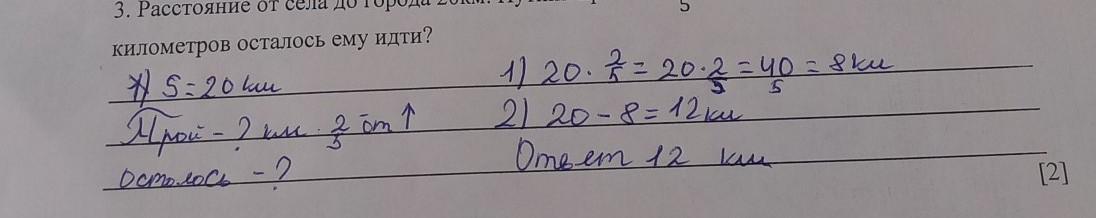 3. Расстояние от села до города 20км.
5
километров осталось ему идти?
S = 20 км
1) 20 · 2/5 = 20·2/5 = 40/5 = 8км
Прой - ? км · 2/5 от ↑
2) 20 - 8 = 12 км
осталось - ?
Ответ 12 км
[2]